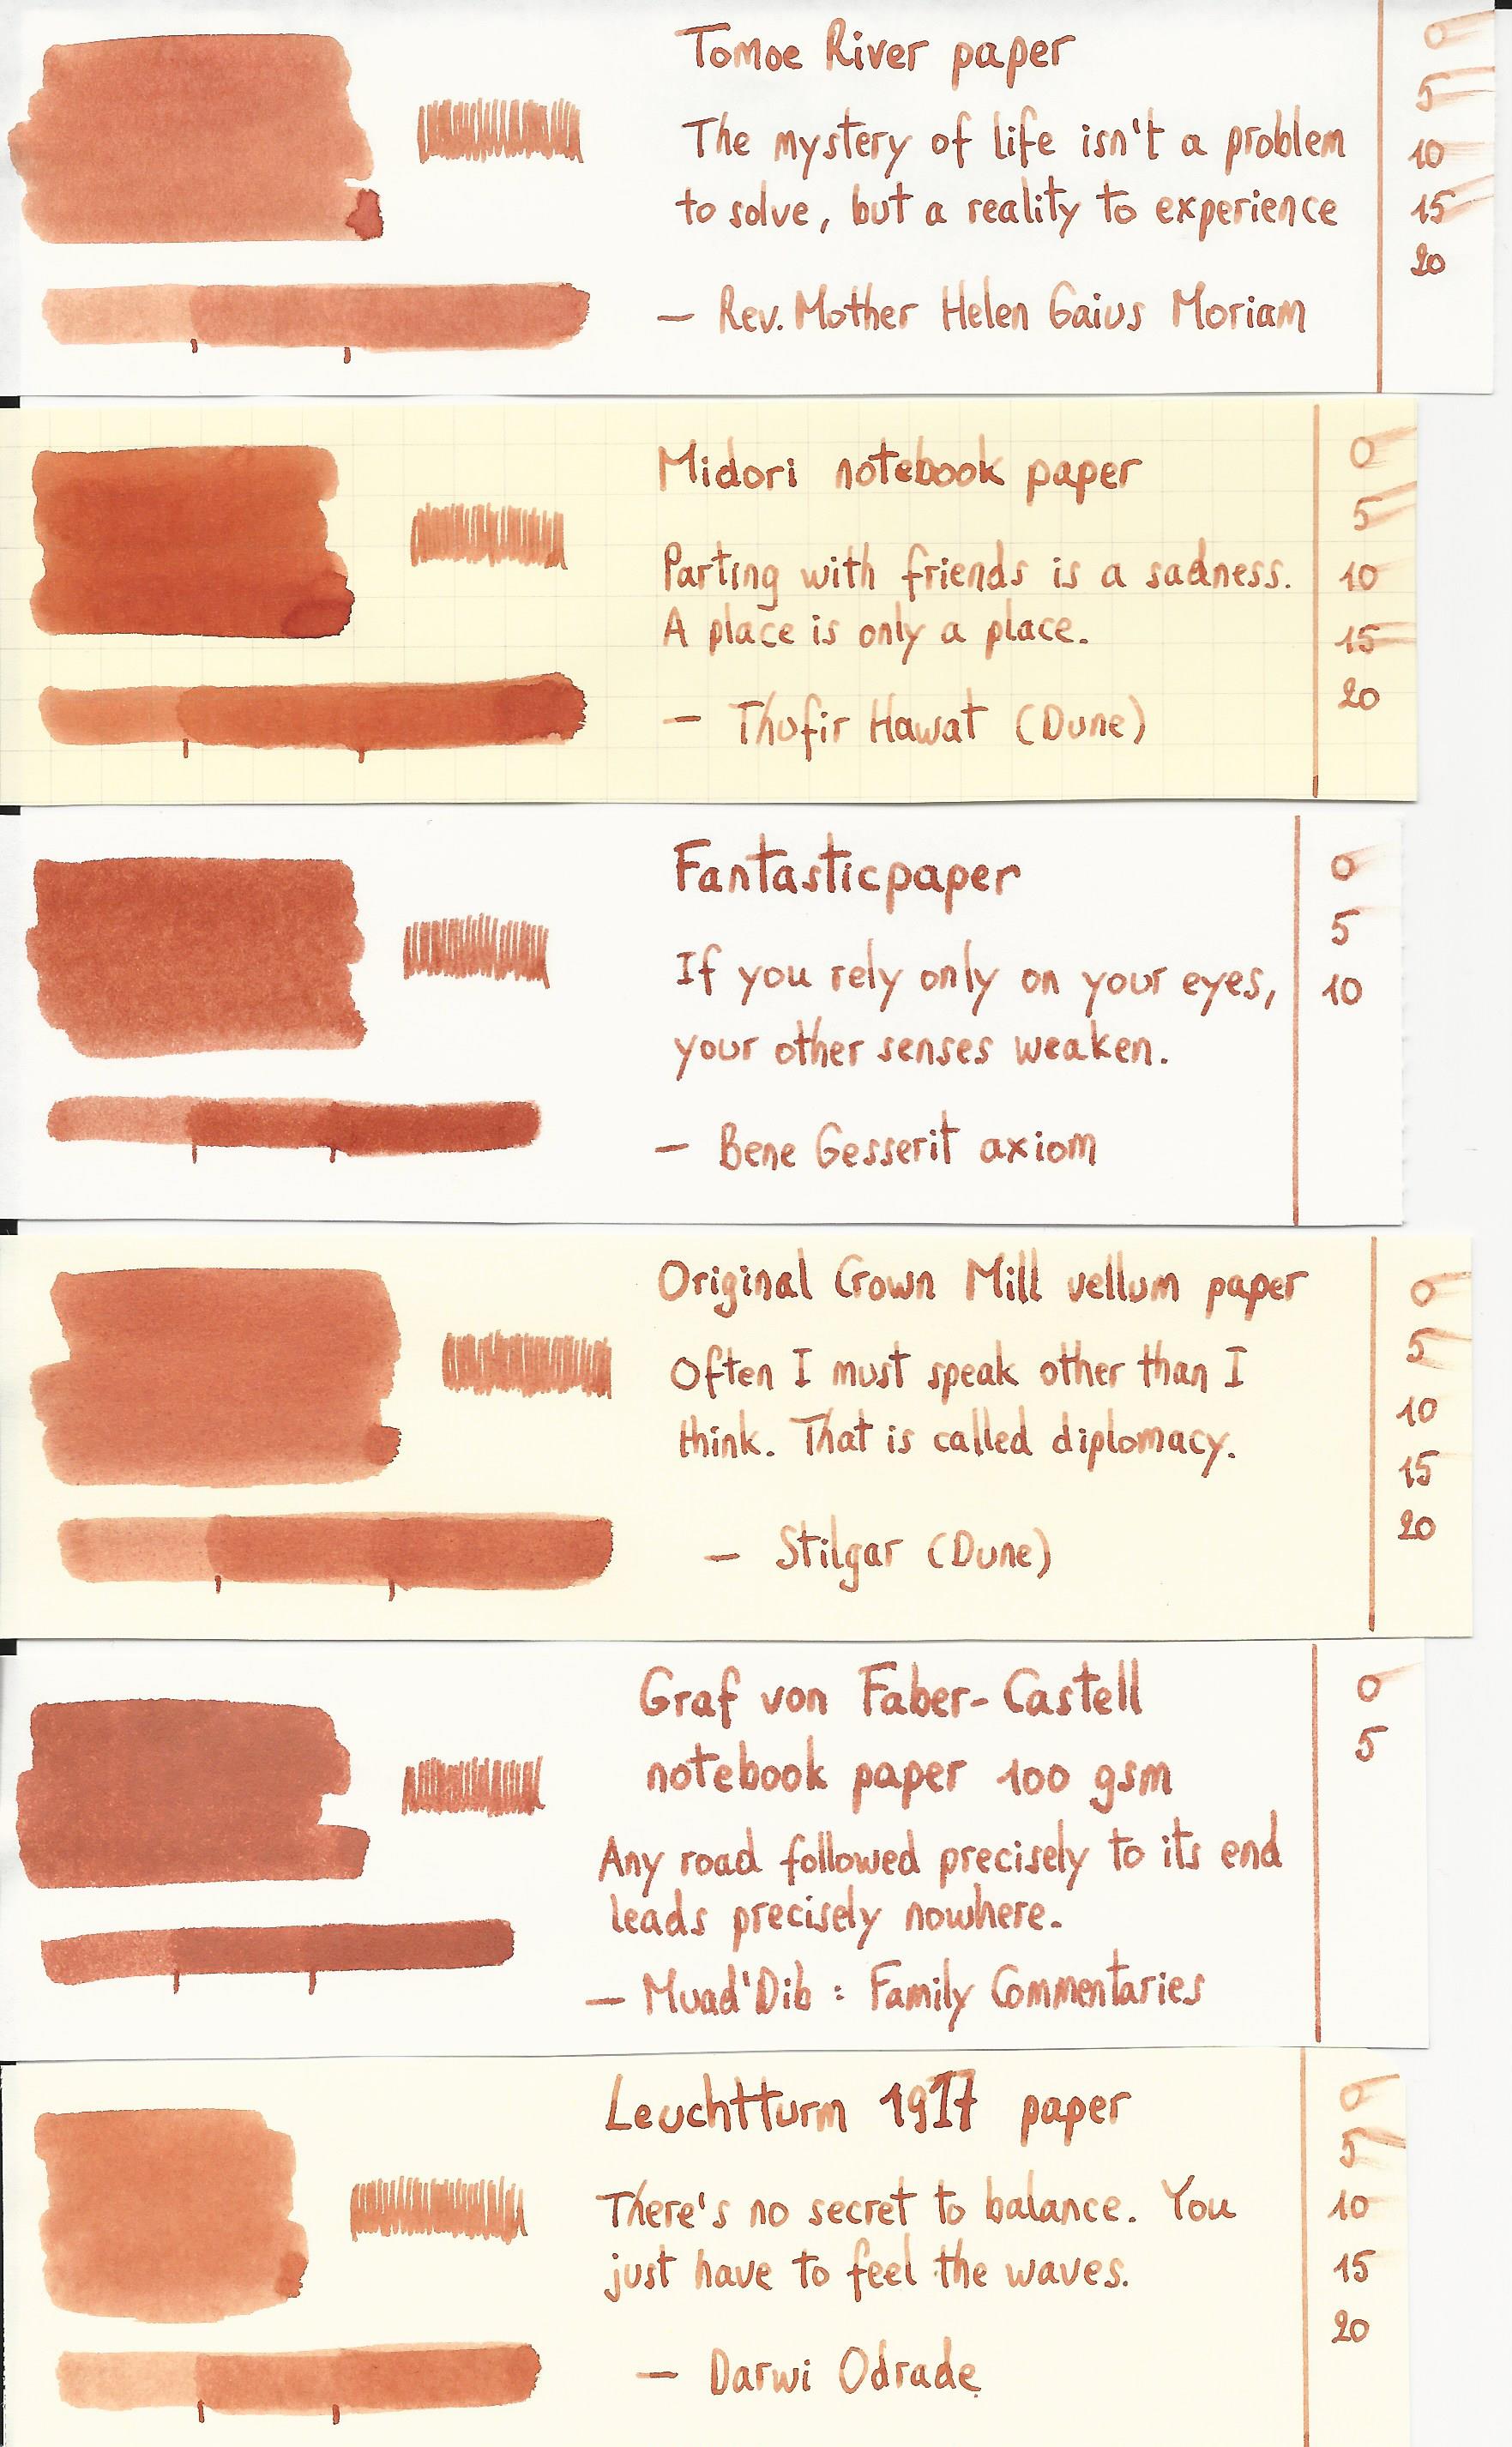 Tomoe River paper
The mystery of life isn't a problem
to solve, but a reality to experience
— Rev. Mother Helen Gaius Moriam
0
5
10
15
20
Midori notebook paper
Parting with friends is a sadness.
A place is only a place.
— Thufir Hawat (Dune)
0
5
10
15
20
Fantasticpaper
If you rely only on your eyes,
your other senses weaken.
— Bene Gesserit axiom
0
5
10
Original Crown Mill vellum paper
Often I must speak other than I
think. That is called diplomacy.
— Stilgar (Dune)
0
5
10
15
20
Graf von Faber-Castell
notebook paper 100 gsm
Any road followed precisely to its end
leads precisely nowhere.
— Muad'Dib : Family Commentaries
0
5
Leuchtturm 1917 paper
There's no secret to balance. You
just have to feel the waves.
— Darwi Odrade
0
5
10
15
20